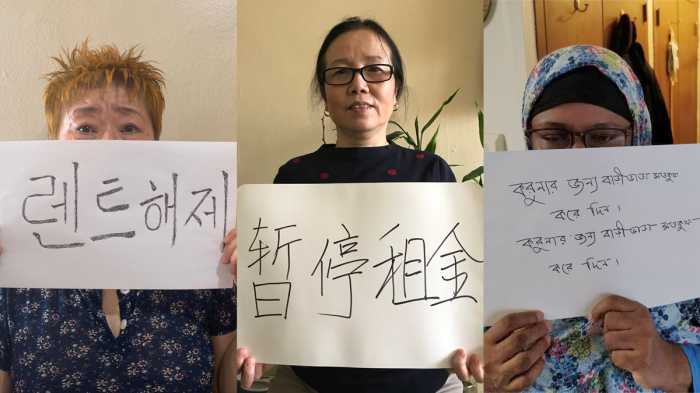 렌트해제
暂停租金
করুনার জন্য বাড়ীভাড়া মওকুফ
করে দিন।
করুনার জন্য বাড়ীভাড়া মওকুফ
করে দিন।